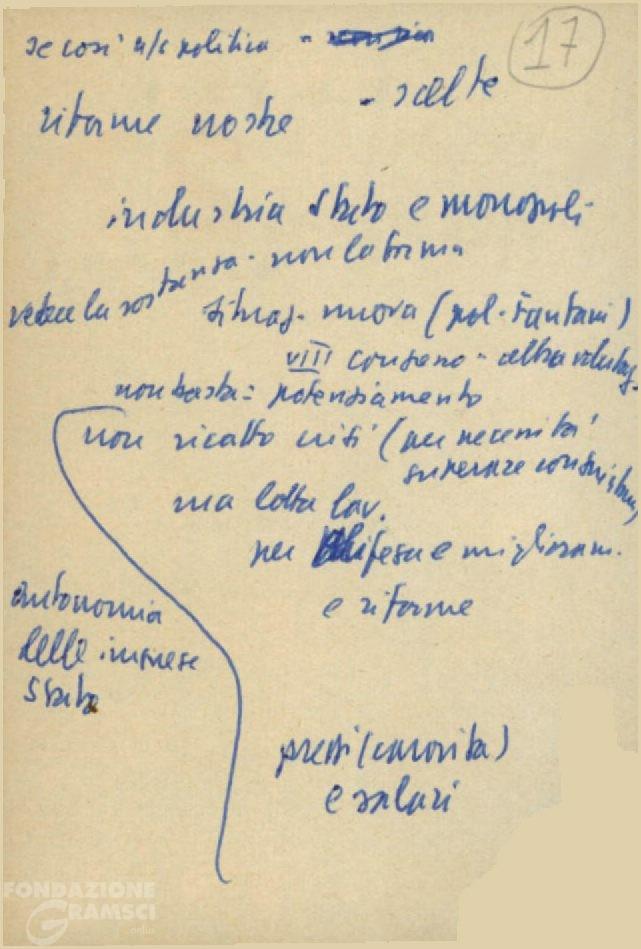 17
se così a/c politica -
riforme nostre - scelte
industria Stato e monopoli
vedere la sostanza - non la forma
situaz. nuova (pol.
VIII
non basta = potenziamento
non ricatto crisi (per necessità
superare
ma lotta lav.
per difesa e miglioram.
e riforme
autonomia
delle imprese
Stato
prezzi (carovita)
e salari
FONDAZIONE
GRAMSCI
onlus